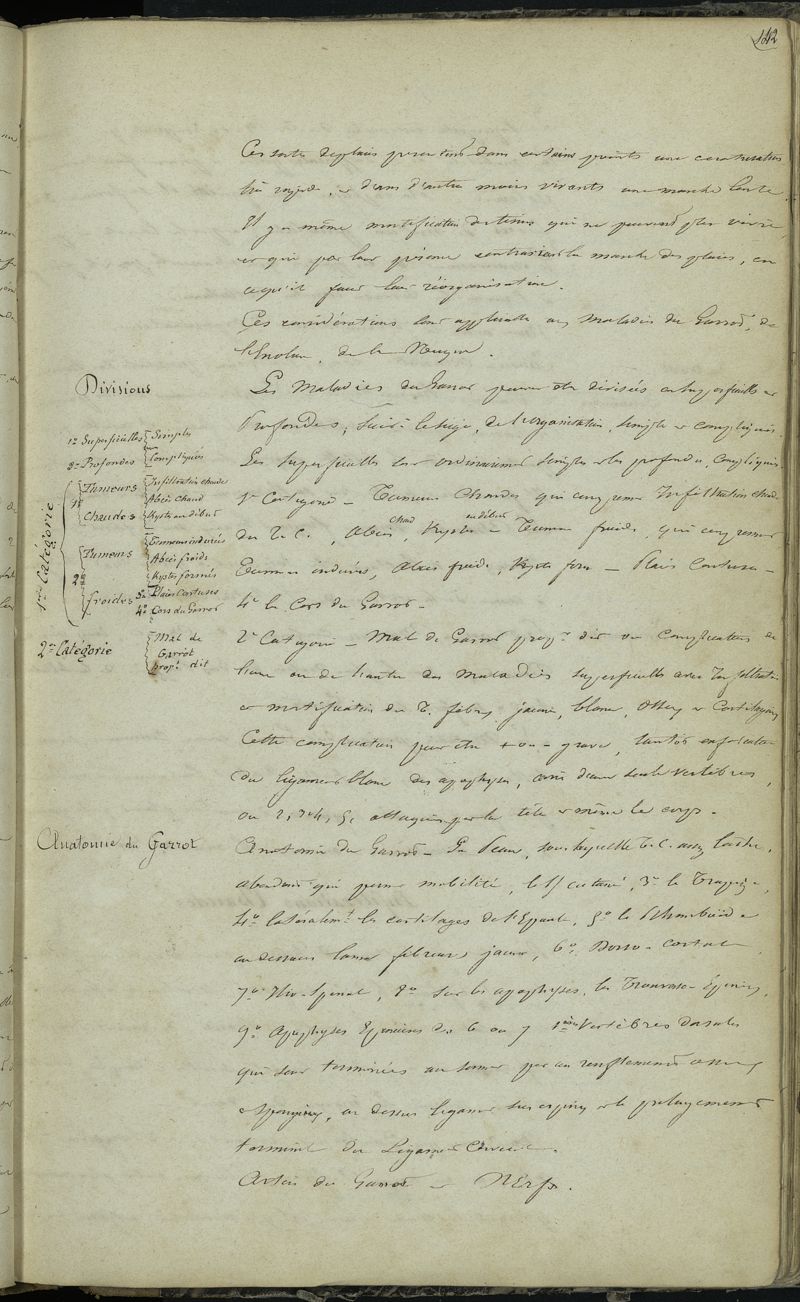 142
Ces sortes de plaies présentent dans certains points une cicatrisation
très rapide, et dans d'autres moins vivants une marche lente.
Il y a même mortification de tissus qui ne peuvent plus vivre,
et qui par leur présence contrarient la marche des plaies, en
ce qu'il faut leur réorganisation.
Ces considérations sont applicables aux Maladies du Garrot, de
l'Encolure, de la Nuque.
Divisions
Les Maladies du Garrot peuvent être divisées en superficielles et
Profondes, suivt le siège, de l'organisation, simples et compliquées.
Les superficielles sont ordinairement simples et les profondes, compliquées
1re Catégorie - Tumeurs Chaudes qui comprennent Infiltration chaude
du T. C., Abcès chaud, Kystes au début - Tumeurs froides, qui comprennent
Tumeurs indurées, Abcès froids, Kystes formés - Plaies Contuses -
4o le Cors du Garrot -
1o Superficielles { Simples
2o Profondes { Compliqués
1re Catégorie
1o Tumeurs Chaudes { Infiltration chaude
Abcès chaud
Kystes au début
2o Tumeurs froides { Tumeurs indurées
Abcès froids
Kystes formés
3o Plaies Contuses
4o Cors du Garrot
2e Catégorie { Mal de
Garrot
propt dit
2e Catégorie - Mal de Garrot propt dit ou Complication de
l'une ou de l'autre des Maladies superficielles avec Infiltration
et mortification du T. fibreux jaune, blanc, Osseux et Cartilagineux
Cette complication peut être + ou - grave, tantôt
du ligament blanc des apophyses, d'une seule vertèbre,
ou 2, 3, 4, 5, attaquées par la tête et même le corps.
Anatomie du Garrot
Anatomie du Garrot - La Peau, sous laquelle T. C. assez lâche,
abondant qui permet mobilité, le cutané, 3o le Trapèze,
4o latéralemt les cartilages de l'Epaule, 5o le Rhomboïde
au dessous lame fibreuse jaune, 6o Dorso-costal
7o Ilio-Spinal, 8o sur les apophyses, les Transverso-Épineux,
9o Apophyses Épineuses des 6 ou 7 1ères Vertèbres dorsales
qui sont terminées au sommet par un renflement osseux
spongieux, au dessus ligament sus épineux et le prolongement
terminal du Ligament Cervical.
Artères du Garrot - Nerfs.